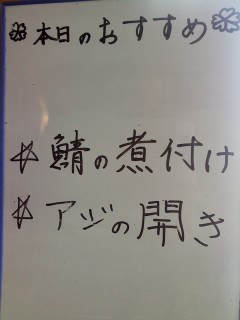 本日のおすすめ
☆鯖の煮付け
☆アジの開き